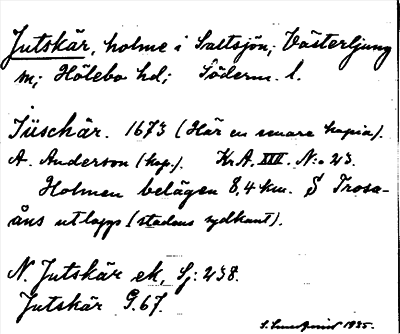 Jutskär, holme i Saltsjön; Västerljung
sn; Hölebo hd; Söderm. l.
Jüschär. 1673 (Här en senare kopia).
A. Anderson (kop.). KrA. XIII. N:o 23.
Holmen belägen 8,4 km. S Trosa-
åns utlopp (stadens sydkant).
N. Jutskär ek, Sj: 238.
Jutskär G.67.
1935.